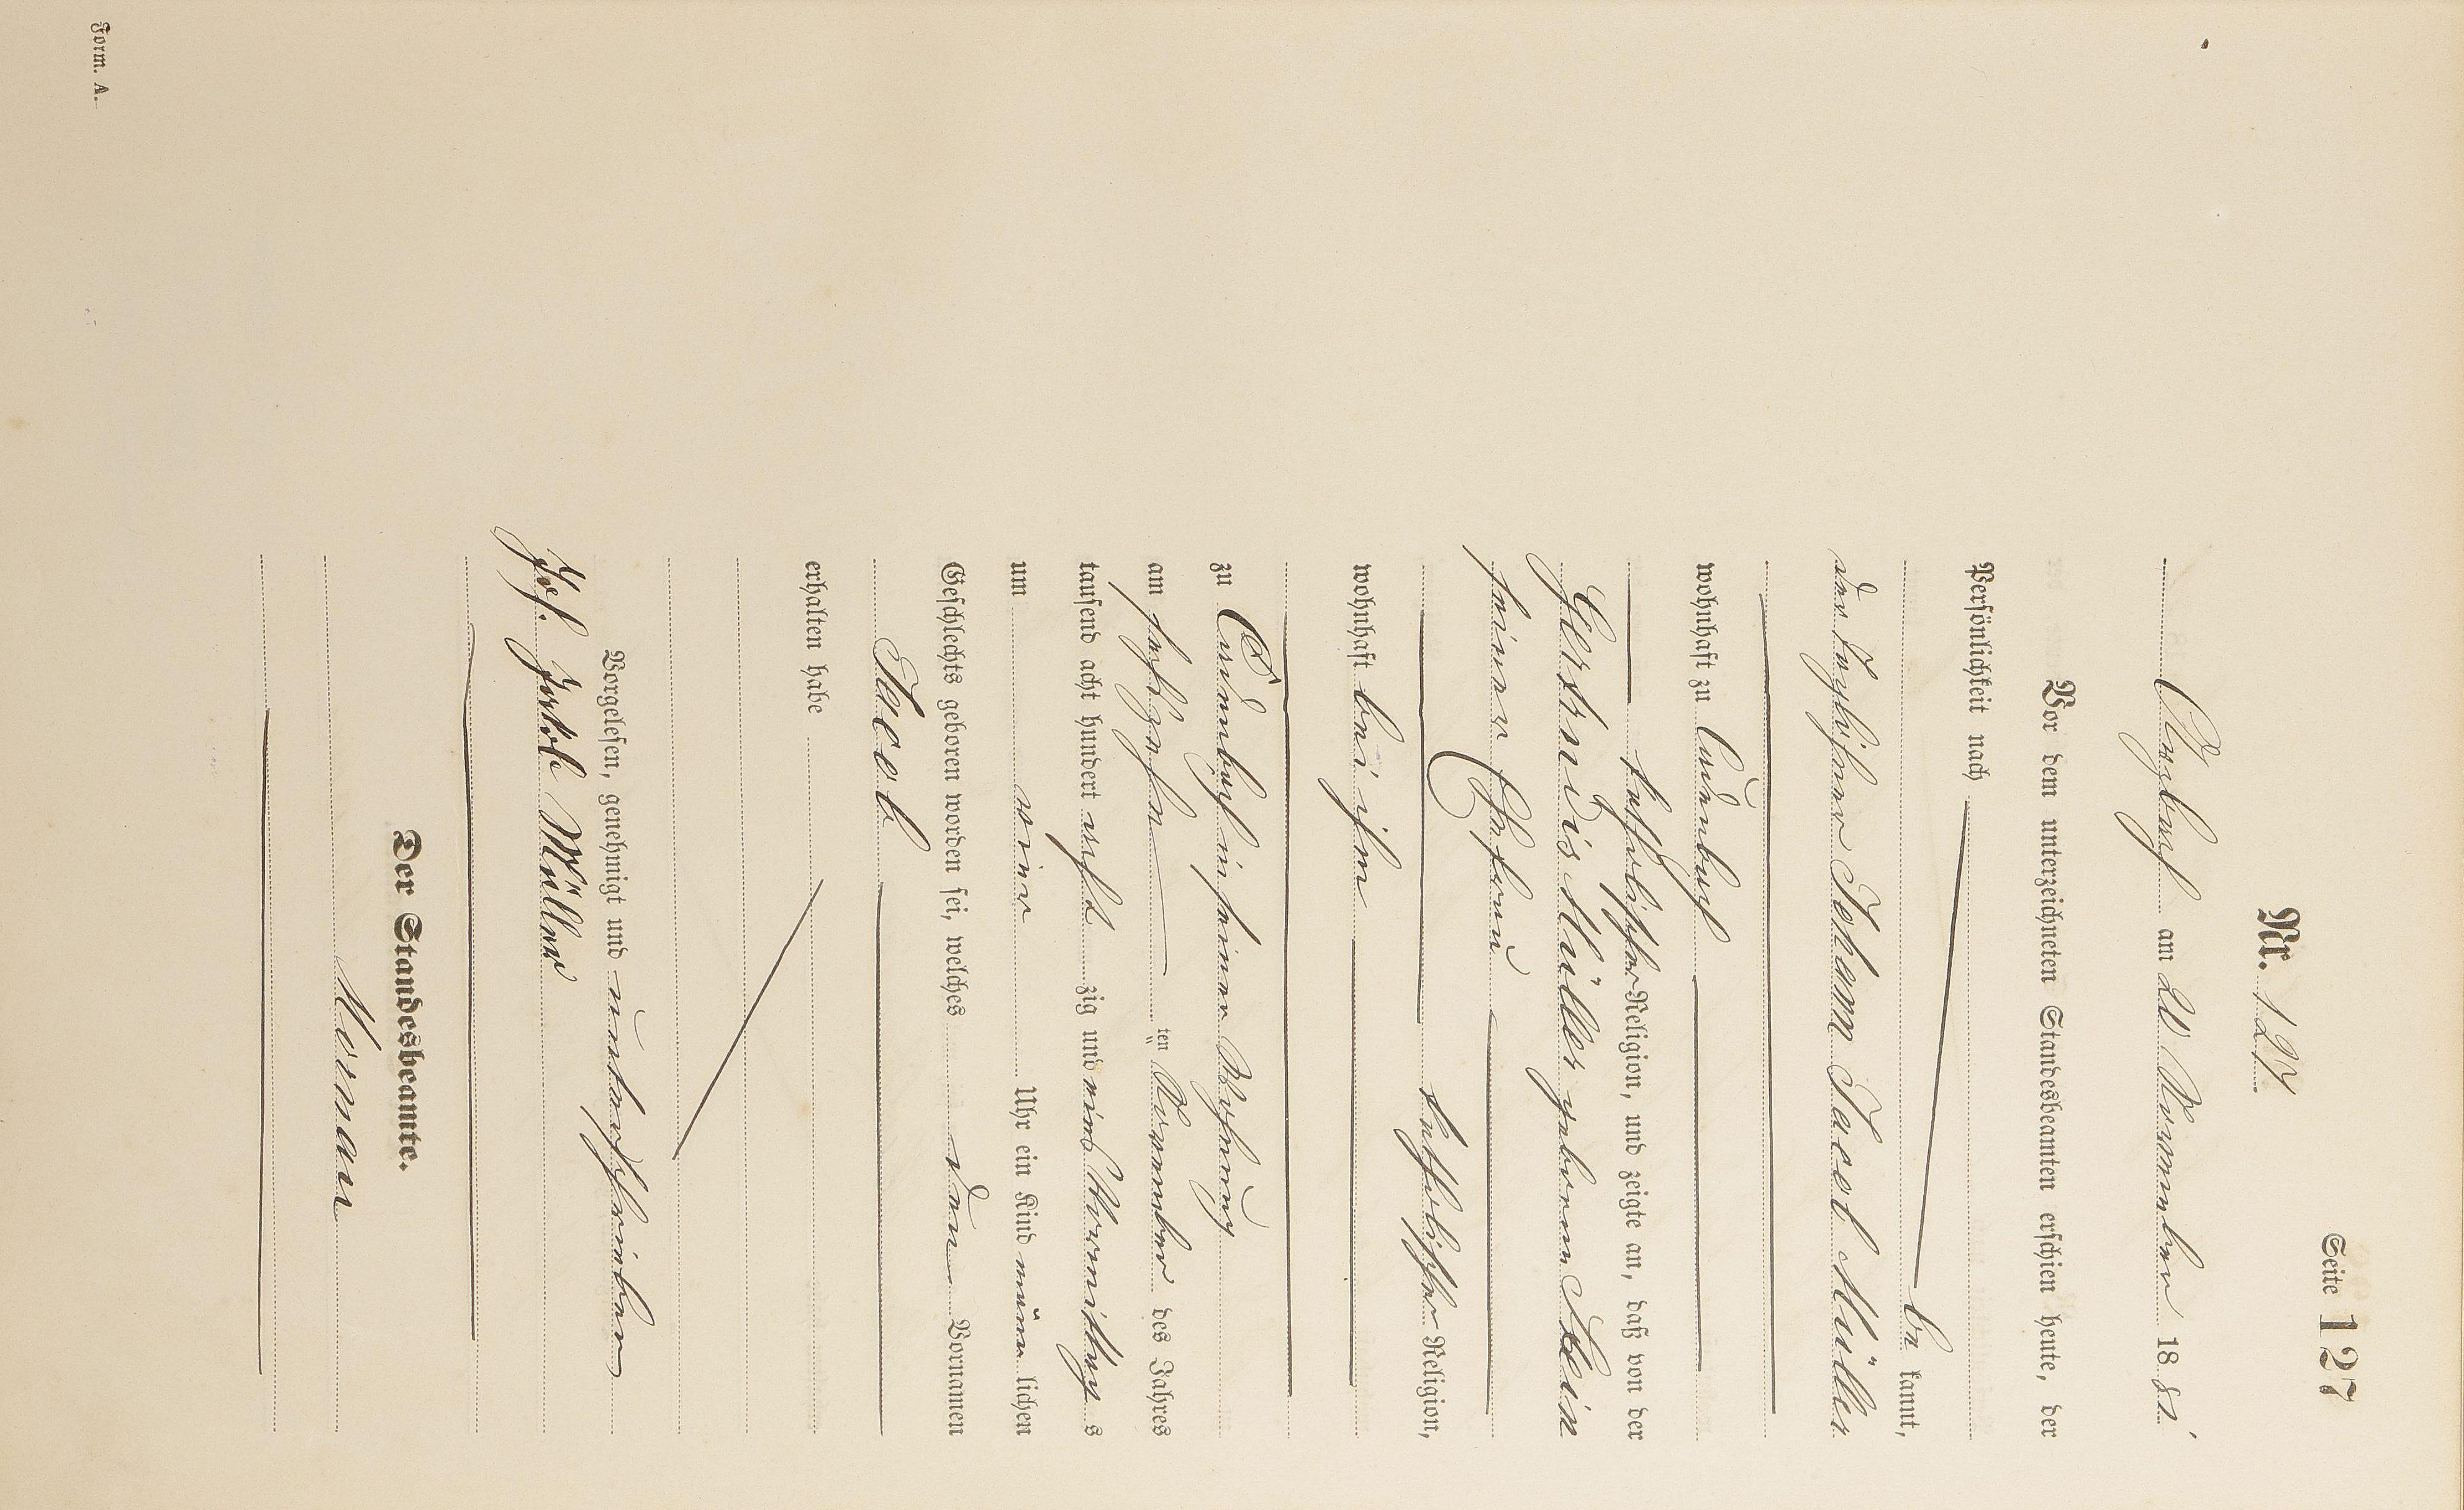 Seite 127
Nr. 127.
am 20 November 1881.
Vor dem unterzeichneten Standesbeamten erschien heute, der
Persönlichkeit nach
be kannt,
der Tagelöhner Johann Jacob Müller
wohnhaft zu
katholischer Religion, und zeigte an, daß von der
Gertrudis Müller geborene Stein
seiner Ehefrau
katholischer Religion,
wohnhaft bei ihm
zu in seiner Wohnung
am sechszehn ten November des Jahres
tausend acht hundert acht zig und eins Vormittag s
um vier Uhr ein Kind männ lichen
Geschlechts geboren worden sei, welches den Vornamen
Jacob
erhalten habe
Vorgelesen, genehmigt und unterschrieben
Joh. Jakob Müller
Der Standesbeamte.
Form. A.